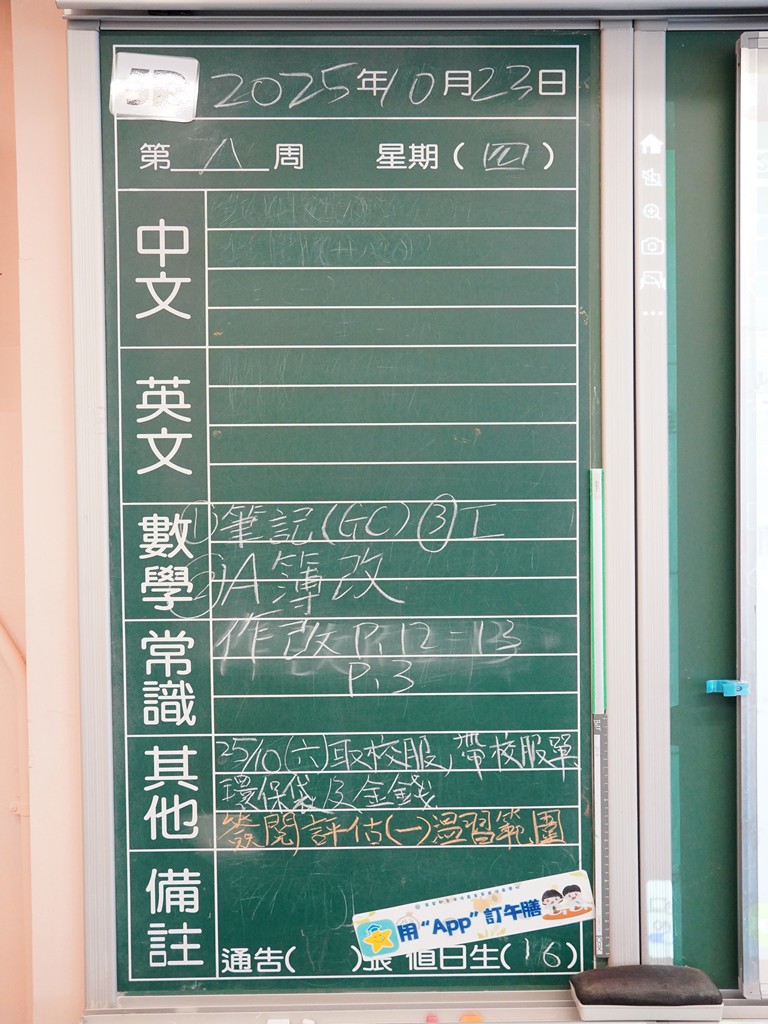 2025年10月23日
第八周 星期(四)
中文
英文
數學
①筆記(GC)③工
②A簿改
常識
作改P.12-13
P.3
其他
25/10(六)取校服,帶校服單
環保袋及金錢
簽閱評估(一)溫習範圍
備註
用“App”訂午膳
通告( )張 值日生(16)